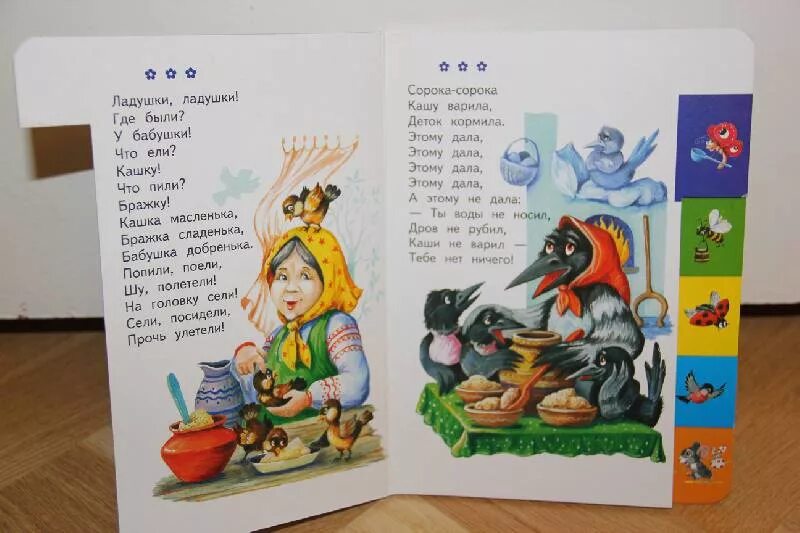 Ладушки, ладушки!
Где были?
У бабушки!
Что ели?
Кашку!
Что пили?
Бражку!
Кашка масленька,
Бражка сладенька,
Бабушка добренька.
Попили, поели,
Шу, полетели!
На головку сели!
Сели, посидели,
Прочь улетели!
Сорока-сорока
Кашу варила,
Деток кормила.
Этому дала,
Этому дала,
Этому дала,
Этому дала,
А этому не дала:
— Ты воды не носил,
Дров не рубил,
Каши не варил —
Тебе нет ничего!